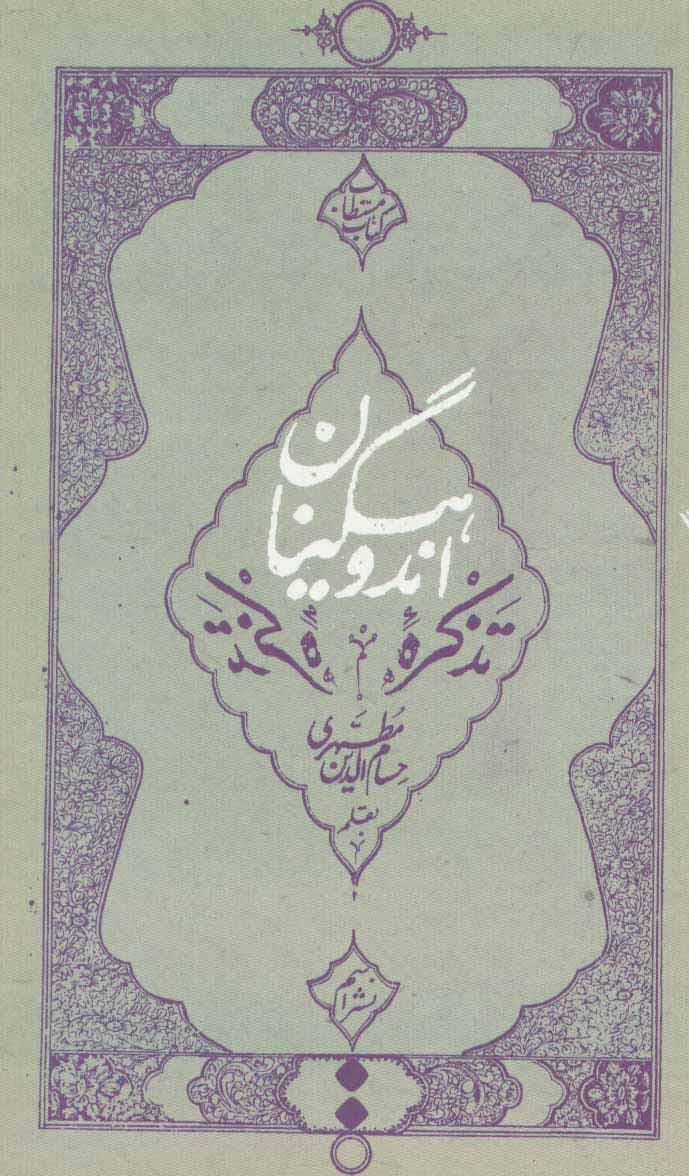 کتاب مستطاب
تذکرهٔ
اندوهگینان
بقلم
حسام الدین مطهری
نشر اسم